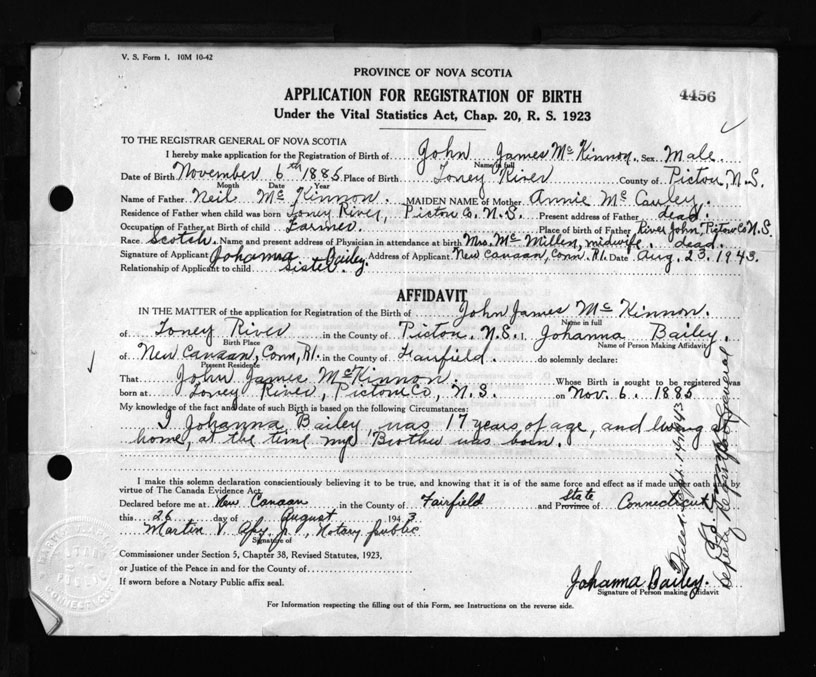 V. S. Form 1. 10M 10-42
PROVINCE OF NOVA SCOTIA
APPLICATION FOR REGISTRATION OF BIRTH
4456
Under the Vital Statistics Act, Chap. 20, R. S. 1923
TO THE REGISTRAR GENERAL OF NOVA SCOTIA
I hereby make application for the Registration of Birth of John James McKinnon. Sex Male.
Name in full
Date of Birth November 6th 1885 Place of Birth Toney River County of Pictou, N.S.
Month Date Year
Name of Father Neil McKinnon. MAIDEN NAME of Mother Annie McCauley.
Residence of Father when child was born Toney River, Pictou Co. N.S. Present address of Father dead.
Occupation of Father at Birth of child Farmer. Place of birth of Father River John, Pictou Co N.S.
Race Scotch. Name and present address of Physician in attendance at birth Mrs. McMillen, midwife. dead.
Signature of Applicant Johanna Bailey. Address of Applicant New Canaan, Conn. R1. Date Aug. 23. 1943.
Relationship of Applicant to child sister.
AFFIDAVIT
IN THE MATTER of the application for Registration of the Birth of John James McKinnon.
Name in full
of Toney River in the County of Pictou, N.S. I, Johanna Bailey.
Birth Place Name of Person Making Affidavit
of New Canaan, Conn, R1. in the County of Fairfield. do solemnly declare:
Present Residence
That John James McKinnon. Whose Birth is sought to be registered was
born at Toney River, Pictou Co, N.S. on Nov. 6. 1885
My knowledge of the fact and date of such Birth is based on the following Circumstances:
I Johanna Bailey, was 17 years of age, and living at
home, at the time my Brother was born.
I make this solemn declaration conscientiously believing it to be true, and knowing that it is of the same force and effect as if made under oath and by
virtue of The Canada Evidence Act.
Declared before me at New Canaan in the County of Fairfield and State Province of Connecticut
this 26 day of August 1943
Martin V. Jr., Notary public
Signature of
Commissioner under Section 5, Chapter 38, Revised Statutes, 1923,
or Justice of the Peace in and for the County of
If sworn before a Notary Public affix seal.
Johanna Bailey.
Signature of Person making Affidavit
For Information respecting the filling out of this Form, see Instructions on the reverse side.
Deputy Registrar General